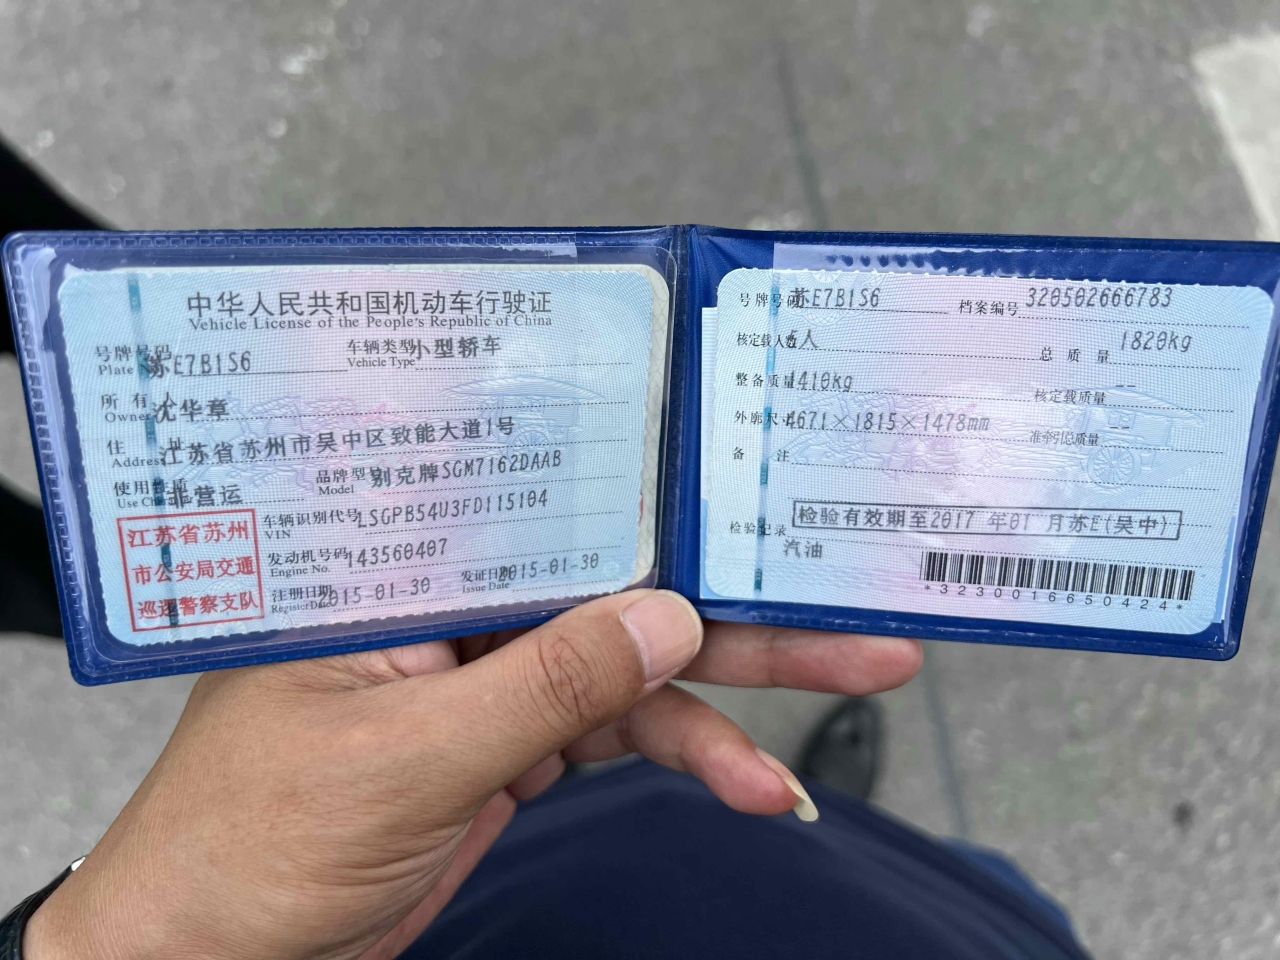 中华人民共和国机动车行驶证
Vehicle License of the People's Republic of China
号牌号码 苏E7B1S6 车辆类型 小型轿车
Plate No. Vehicle Type
所有人 沈华章
Owner
住址 江苏省苏州市吴中区致能大道1号
Address
使用性质 非营运 品牌型号 别克牌SGM7162DAAB
Use Character Model
江苏省苏州
市公安局交通
巡逻警察支队
车辆识别代号 LSGPB54U3FD115104
VIN
发动机号码 143560407
Engine No.
注册日期 2015-01-30 发证日期 2015-01-30
Register Date Issue Date
号牌号码 苏E7B1S6 档案编号 320502666783
核定载人数 5人 总质量 1820kg
整备质量 1410kg 核定载质量 --
外廓尺寸 4671×1815×1478mm 准牵引总质量 --
备注
检验记录 检验有效期至2017 年01 月苏E(吴中)
汽油
*3230016650424*